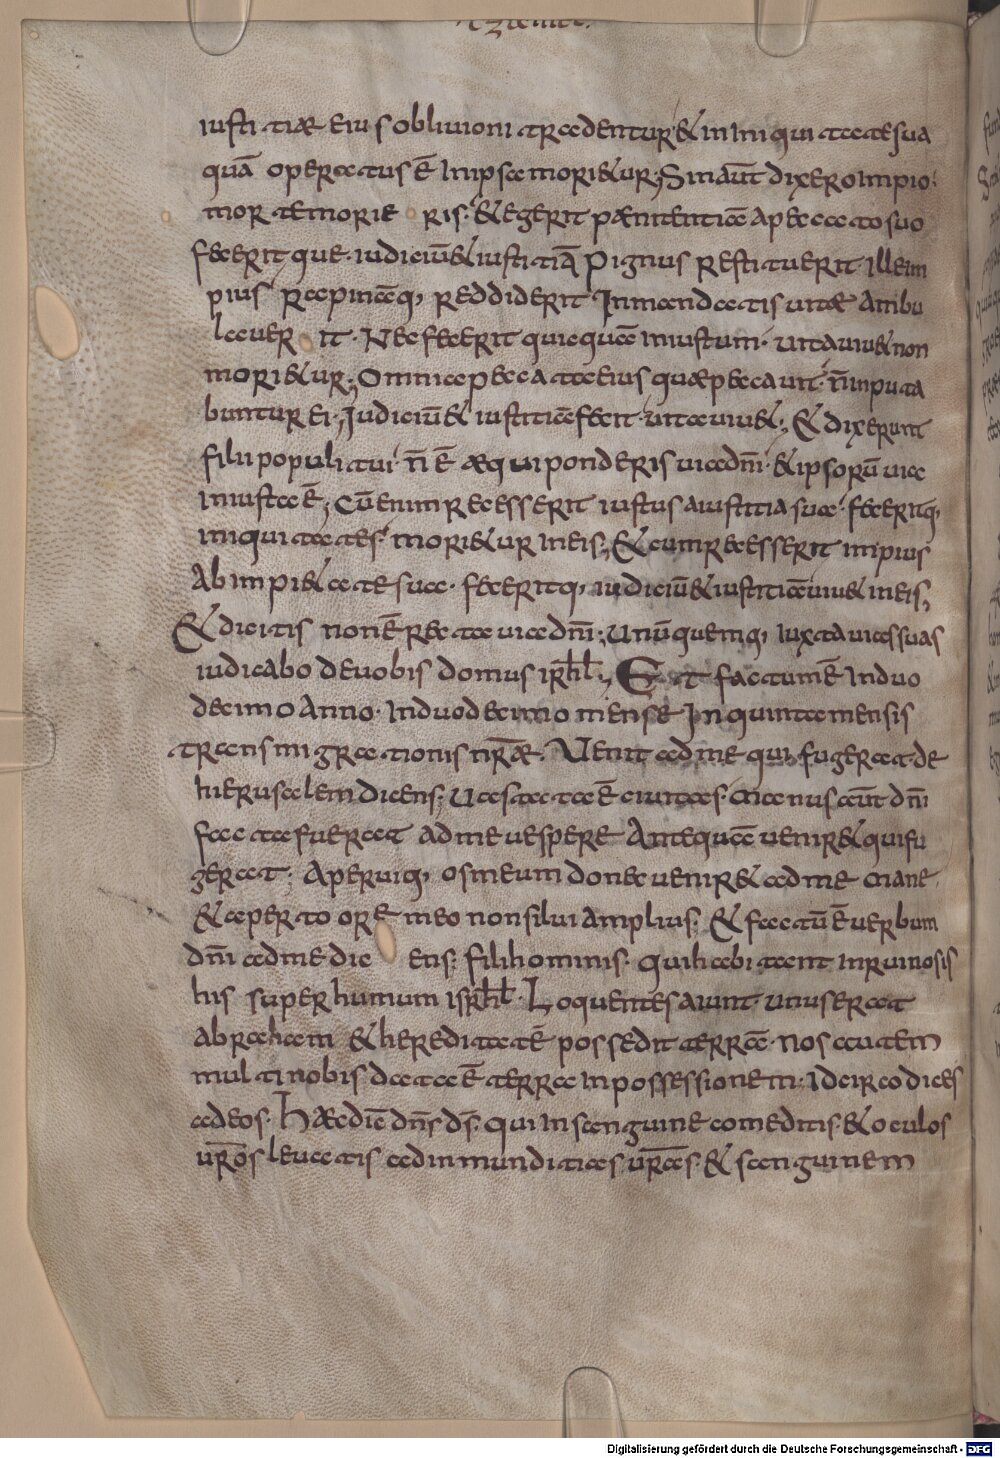 iustitiae eius oblivioni tradentur & in iniquitate sua
quā operatus ē in ipsa mori&ur; Si n aūt dixero impio.
morte morie ris. & egerit paenitentiā a peccato suo
feceritque iudiciū & iustitiā Pignus restituerit ille im
pius rapināq, reddiderit In mandatis vitae ambu
laver it. Nec fecerit quicquā iniustum. vita viu& non
mori&ur; Omnia peccata eius quae peccavit. n̄ inputa
buntur ei. Iudiciū & iustitiā fecit. vita viu&; & dixerunt
filii populi tui. n̄ ē aequi ponderis via dn̄i. & ipsorū via
iniusta ē; Cū enim recesserit iustus a iustitia sua. feceritq,
iniquitates. mori&ur in eis; & cum recesserit impius
ab impi&ate sua. feceritq, iudiciū & iustitiā viu& in eis;
& dicitis non ē recta via dn̄i; Unūquemq, iuxta vias suas
iudicabo de vobis domus isr̄hl; Et factum ē In duo
decimo anno. In duodecimo mense In quinta mensis
transmigrationis nr̄ae. Venit ad me qui fugerat de
hierusalem dicens. Vastata ē civitas. Manus aūt dn̄i
facta fuerat ad me vespere Antequā venir& qui fu
gerat. Aperuitq, os meum donec venir& ad me mane.
& aperto ore meo non silui amplius. & factū ē verbum
dn̄i ad me dic ens. fili hominis. qui habitant in ruinosis
his super humum isr̄hl. Loquentes aiunt. unus erat
abraham & hereditatē possedit terrā. nos autem
multi nobis data ē terra in possessionem. idcirco dices
ad eos. Haec diē dn̄s ds̄. qui in sanguine comeditis. & oculos
vr̄os levatis ad inmunditias vr̄as. & sanguinem
Digitalisierung gefördert durch die Deutsche Forschungsgemeinschaft - DFG